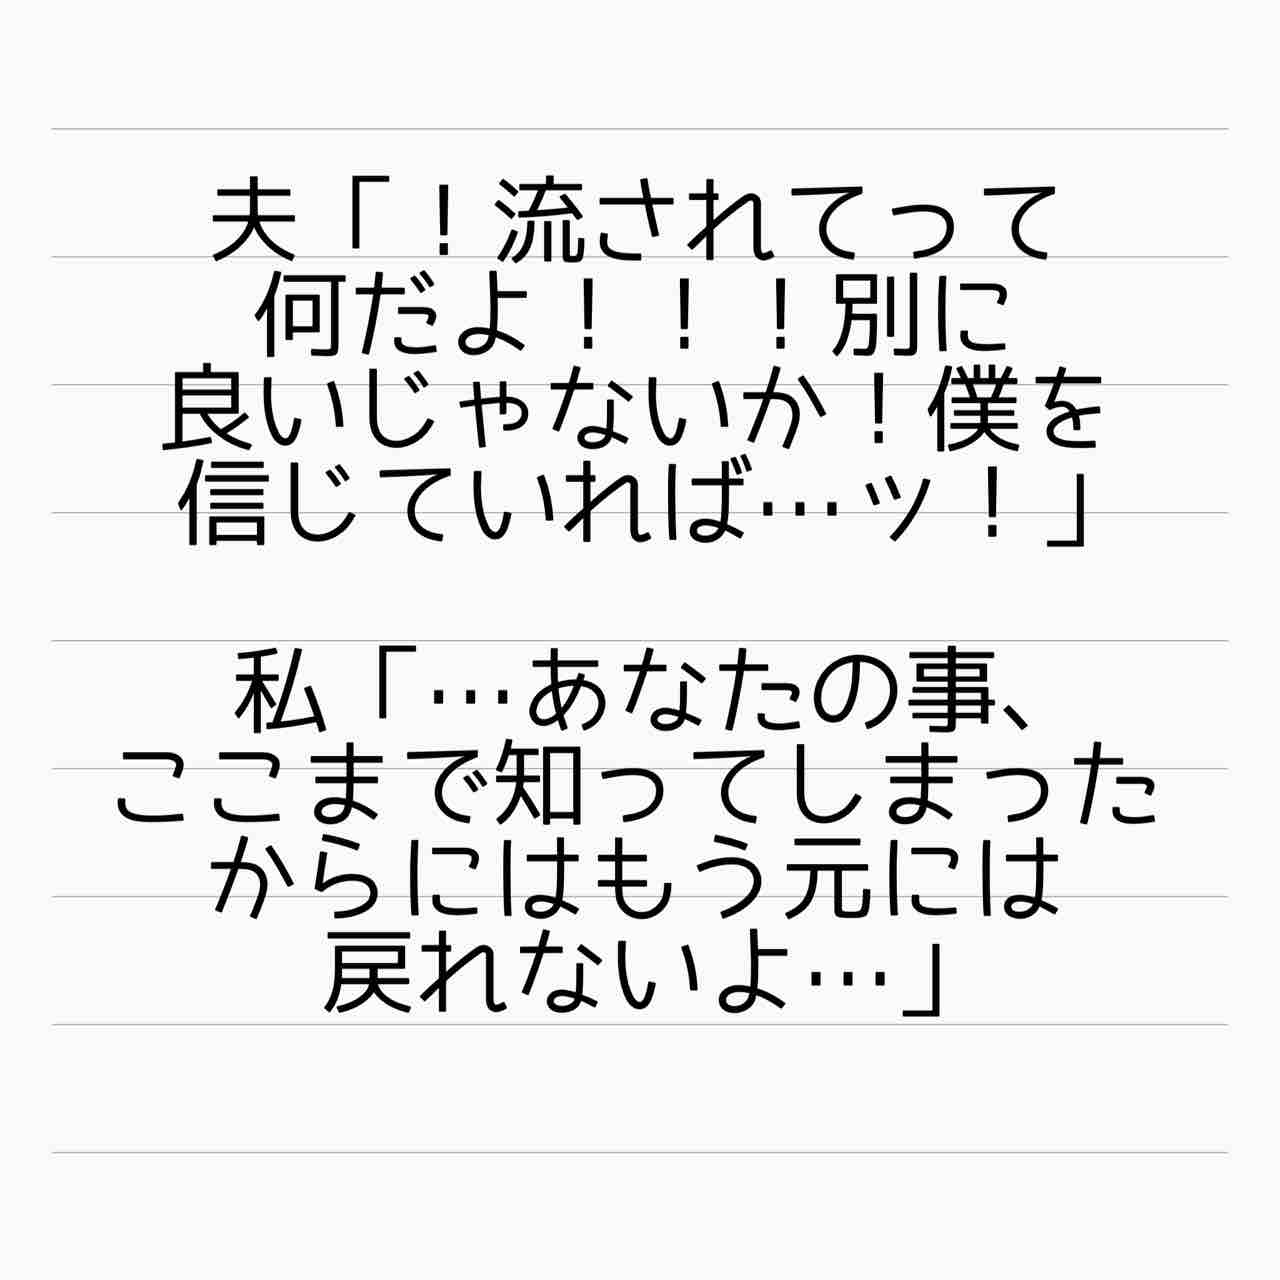 夫「！流されてって
何だよ！！！別に
良いじゃないか！僕を
信じていれば…ッ！」
私「…あなたの事、
ここまで知ってしまった
からにはもう元には
戻れないよ…」